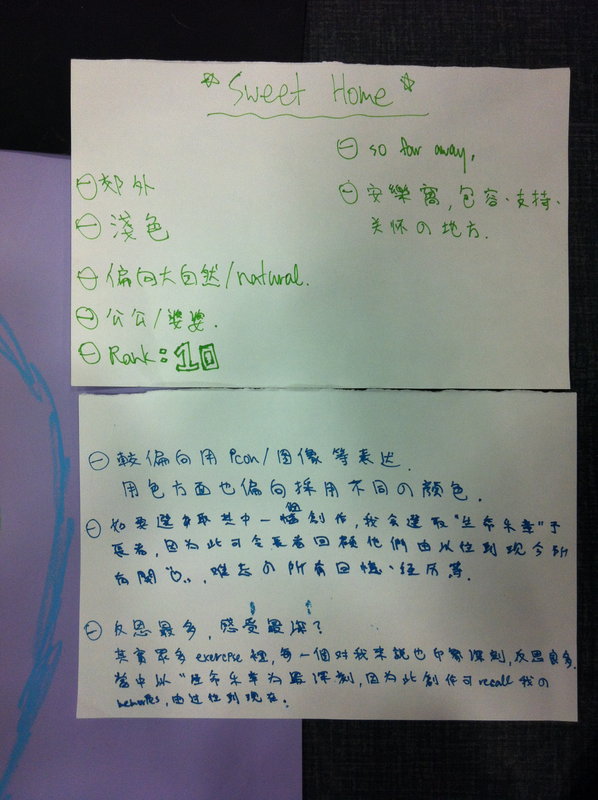 ☆ Sweet Home ☆
⊖ so far away,
⊖ 郊外
⊖ 安樂窩,包容、支持、
关怀の地方.
⊖ 淺色
⊖ 偏向大自然/natural.
⊖ 公公/婆婆.
⊖ Rank: 10
⊖ 較偏向用 icon/图像等表达.
用色方面也偏向採用不同の顏色.
⊖ 如要選取其中一個創作,我会選取"生命乐章"予
長者,因为此可令長者回顧他們由以往到现今所
有開心、难忘の所有回憶、经历等.
⊖ 反思最多,感受最深?
其實眾多 exercise 裡,每一個對我来説也印象深刻,反思良多.
當中以"生命乐章为最深刻,因为此創作可recall 我の
memories,由过往到现在.